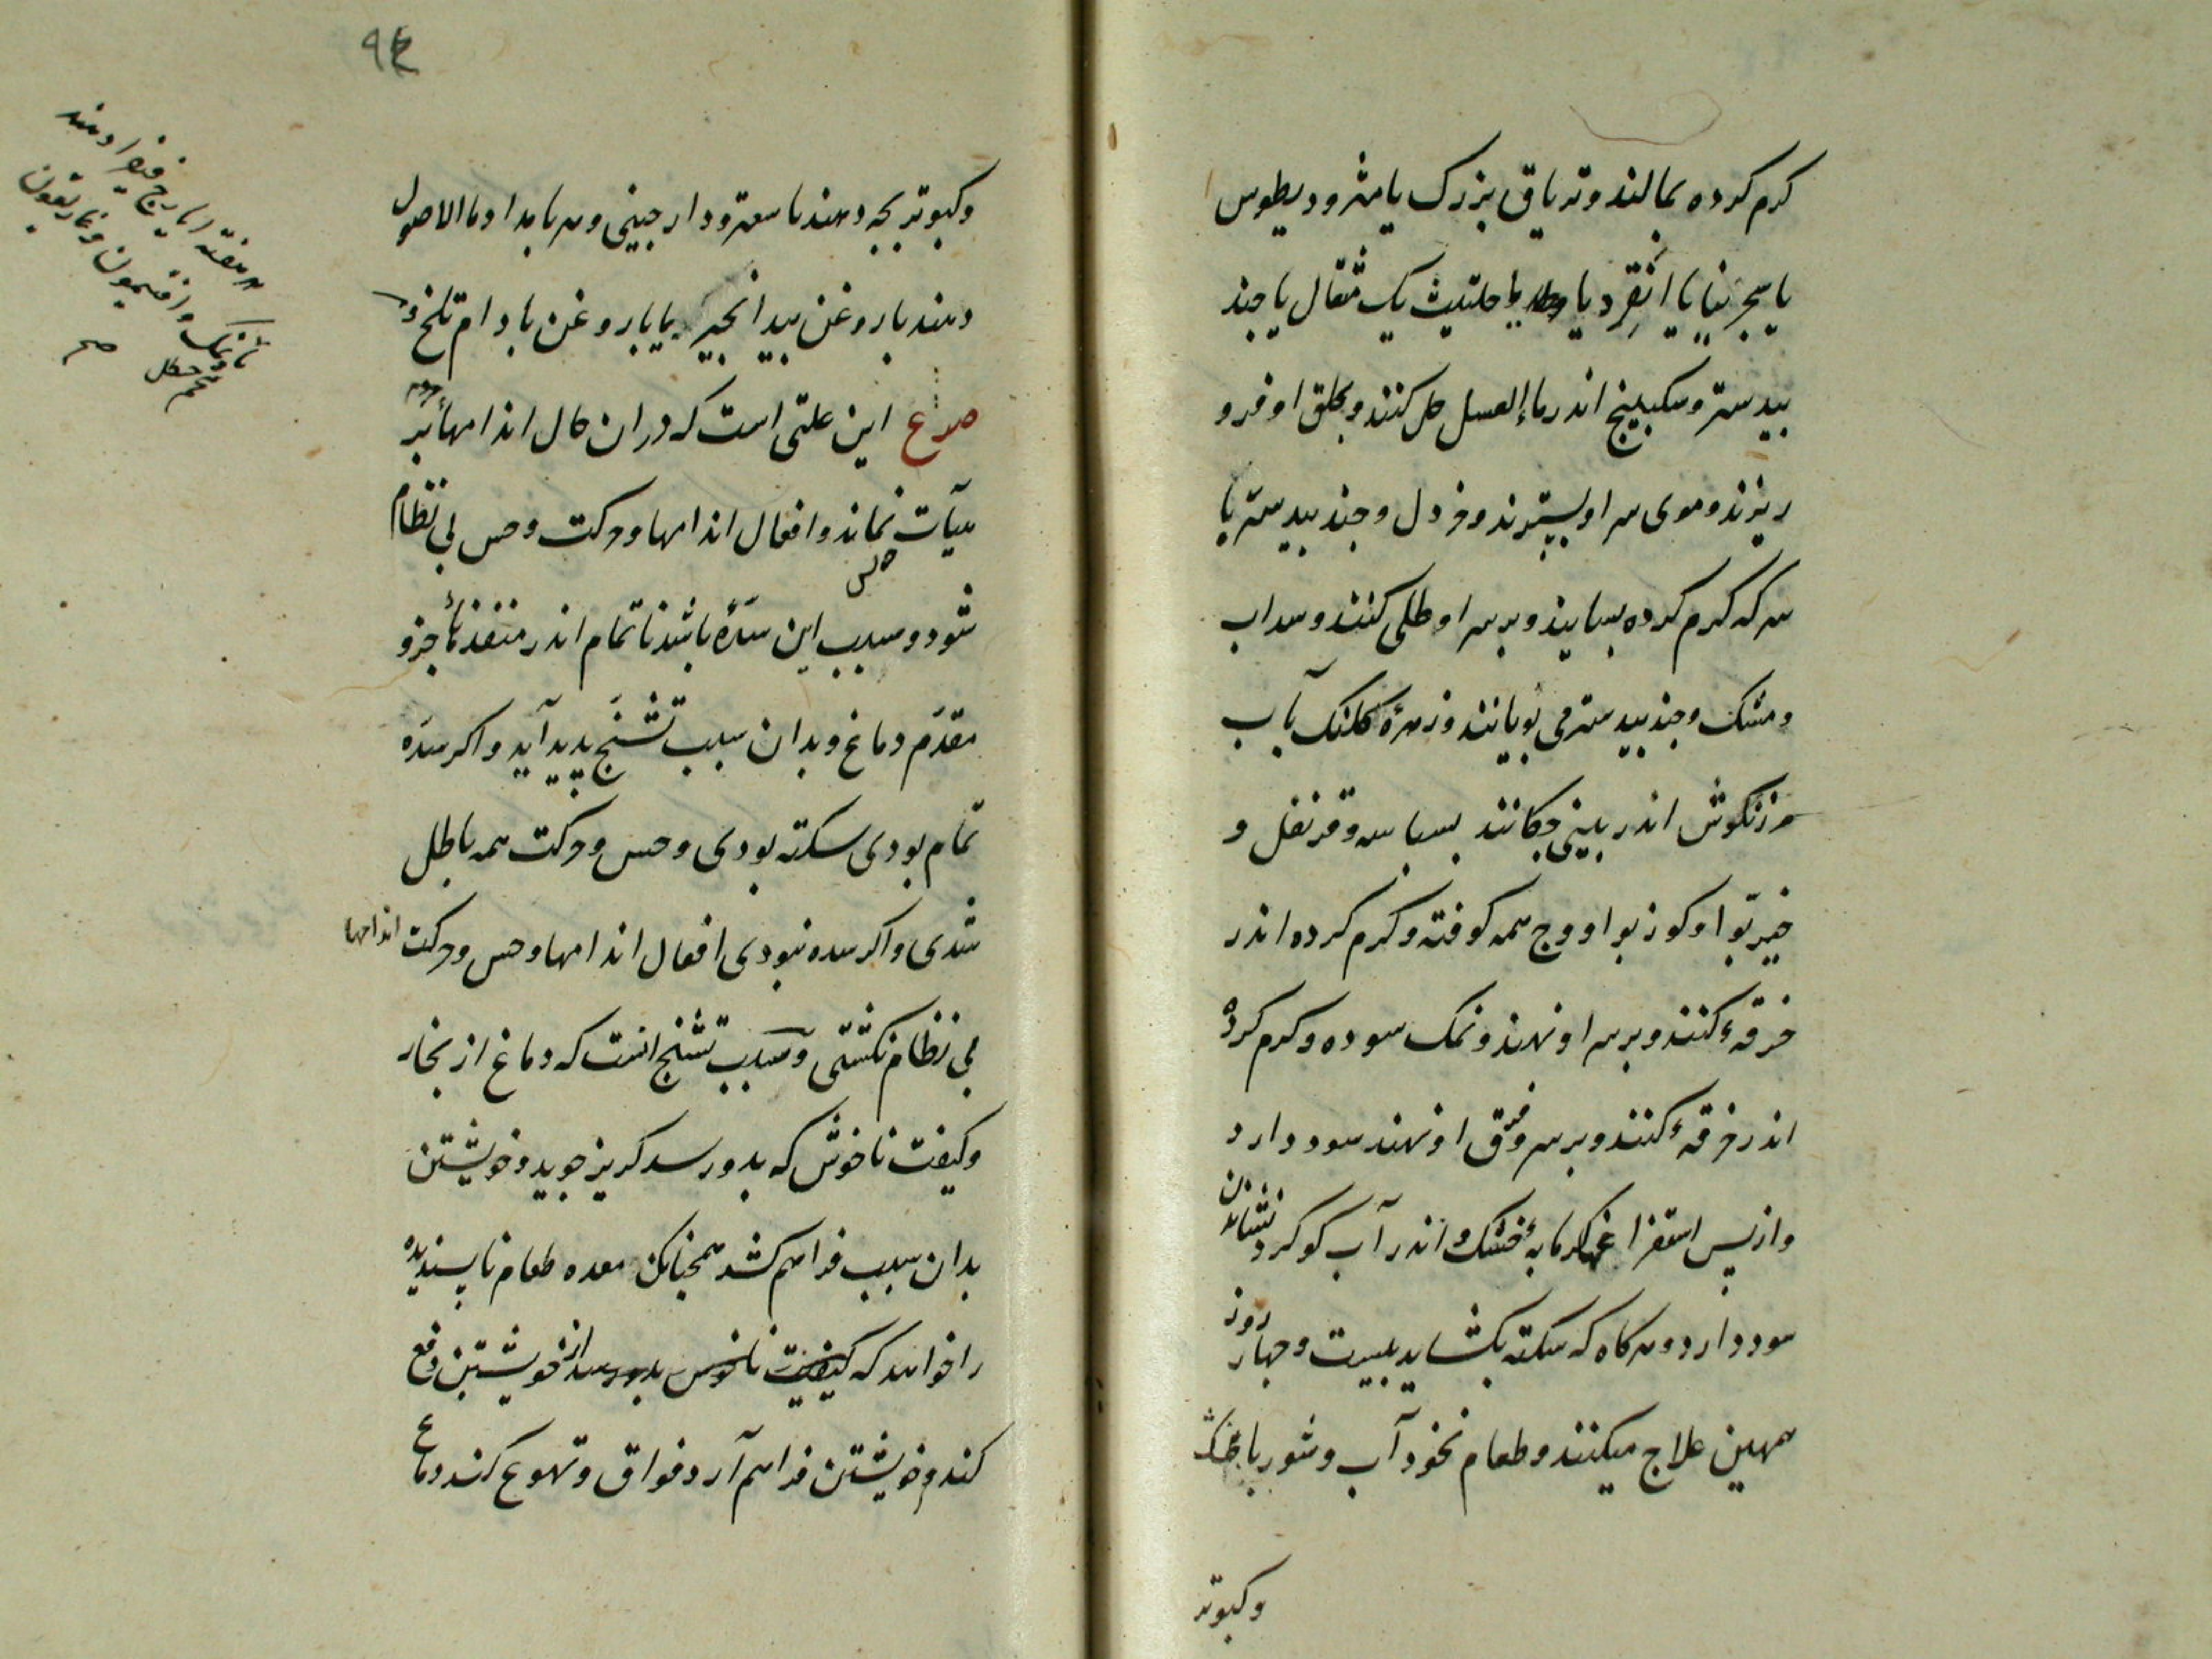 کرم کرده بمالند و تریاق بزرک یا مثرودیطوس
یا سجزنیا یا انقردیا یا حلتیث یک مثقال یا جند
بیدستر و سکبینج اندر ماء العسل حل کنند و بحلق او فرو
ریزند و موی سر او بسترند و خردل و جند بیدستر با
سرکه کرم کرده بسایند و بر سر او طلی کنند و سداب
و مشک و جند بیدستر می بویانند و زهرهٔ کلنک بآب
مرزنکوش اندر بینی چکانند بسباسه و قرنفل و
خیربوا و کوزبوا و وج همه کوفته و کرم کرده اندر
خرقهٔ کنند و بر سر او نهند و نمک سوده و کرم کرده
اندر خرقهٔ کنند و بر سر و فرق او نهند سود دارد
و از پس استفراغها کرمابهٔ خشک و اندر آب کوکرد نشاندن
سود دارد و هرکاه که سکته بکشاید بیست و جهار روز
همین علاج میکنند و طعام نخودآب و شوربا خشک
و کبوتر
و کبوتر بجه دهند با سعتر و دارجینی و هر بامداد ماالاصول
دهند با روغن بیدانجیر یا با روغن بادام تلخ و
در هفته ایارج فیقرا دهند
و افتیمون و غاریقون
صح
صرع این علتی است که در ان حال اندامها بر
هیآت نماند و افعال اندامها و حرکت و حس بی نظام
شود و سبب این سدهٔ باشد ناتمام اندر منفذهاء جزو
مقدم دماغ و بدان سبب تشنج پدید آید و اکر سده
تمام بودی سکته بودی و حس و حرکت همه باطل
شدی و اکر سده نبودی افعال اندامها و حس و حرکت اندامها
بی نظام نکشتی و سبب تشنج انست که دماغ از بخار
و کیفیت ناخوش که بدو رسد کریز جوید و خویشتن
بدان سبب فراهم کشد همجنانک معده طعام ناپسندیده
را خواهد که کیفیت ناخوش بدو رسد از خویشتن دفع
کند و خویشتن فراهم آرد فواق و تهوع کند دماغ